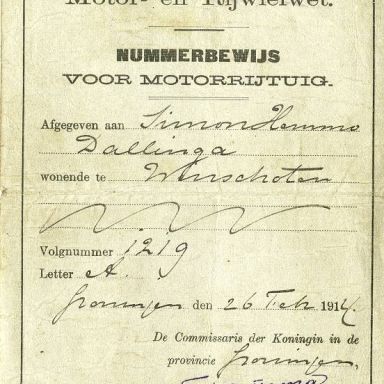 Motor- en Rijwielwet.
NUMMERBEWIJS
VOOR MOTORRIJTUIG.
Afgegeven aan Simon Hemmo
Dallinga
wonende te Winschoten
Volgnummer 1219
Letter A.
Groningen den 26 Feb 1914.
De Commissaris der Koningin in de
provincie Groningen,